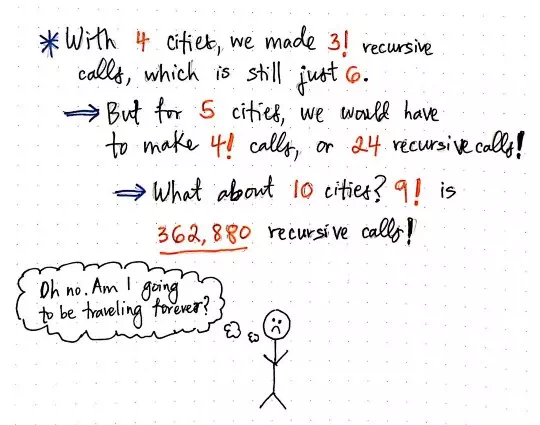 * With 4 cities, we made 3! recursive
calls, which is still just 6.
⇒ But for 5 cities, we would have
to make 4! calls, or 24 recursive calls!
⇒ What about 10 cities? 9! is
362,880 recursive calls!
Oh no. Am I going
to be traveling forever?